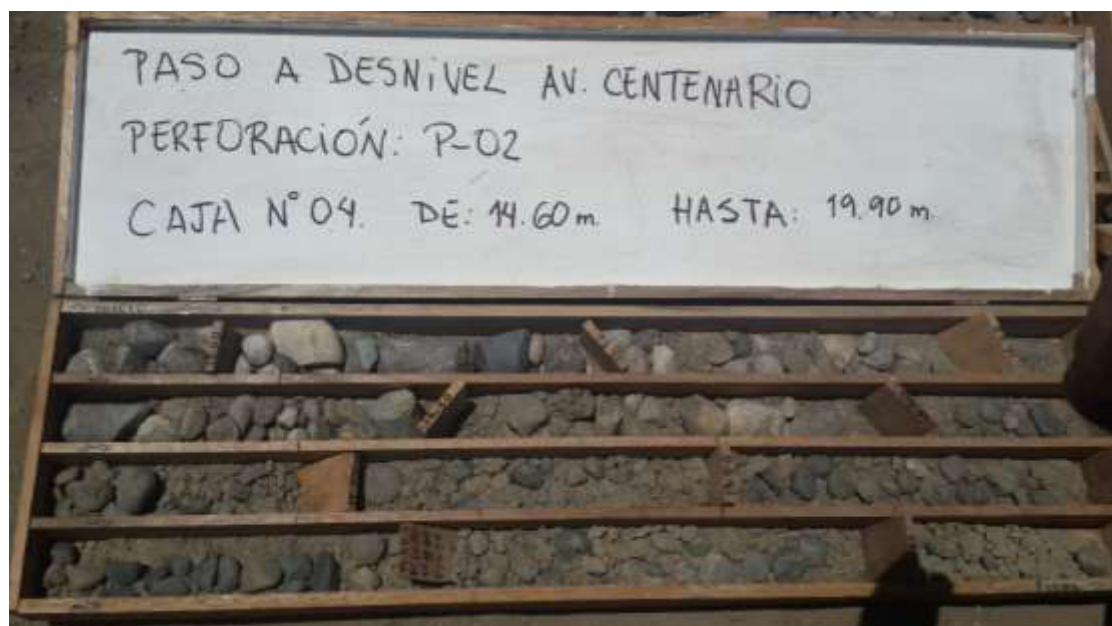 PASO A DESNIVEL AV. CENTENARIO
PERFORACIÓN: P-02
CAJA N° 04. DE: 14.60 m. HASTA: 19.90 m.